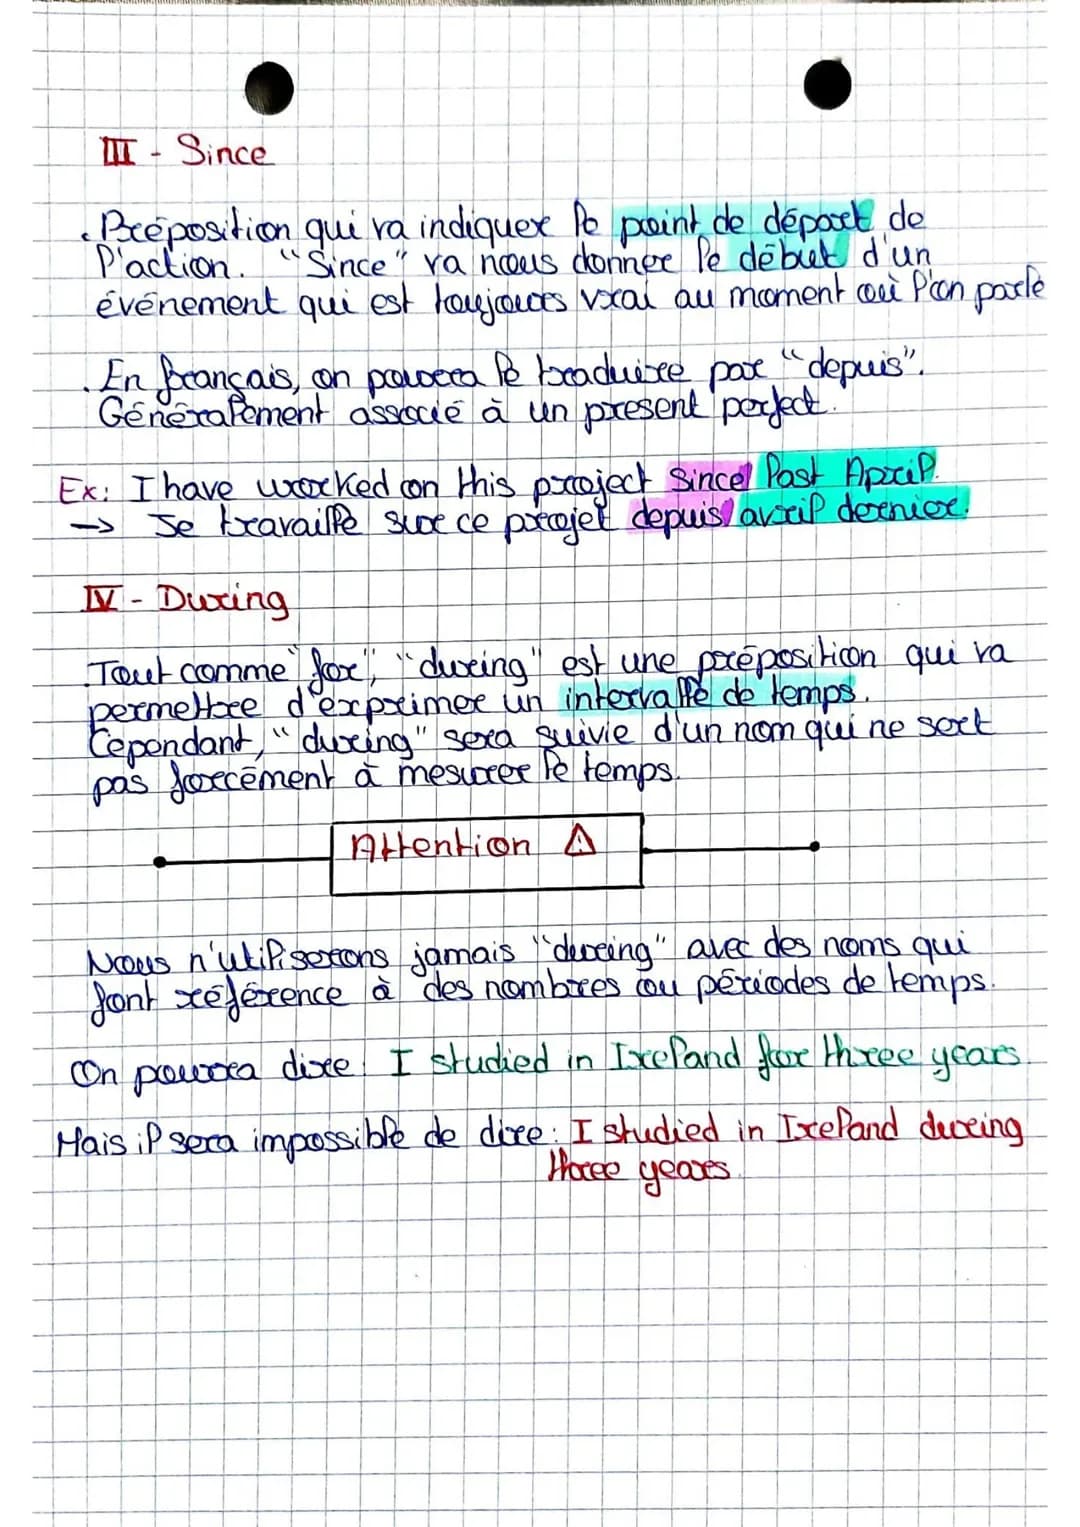 III - Since
. Préposition qui va indiquer le point de départ de
l'action. "Since" va nous donner le début d'un
événement qui est toujours vrai au moment où l'on parle
. En français, on pourra le traduire par "depuis".
Généralement associé à un present perfect.
Ex: I have worked on this project since last April.
→ Je travaille sur ce projet depuis avril dernier.
IV - During
Tout comme "for", "during" est une préposition qui va
permettre d'exprimer un intervalle de temps.
Cependant, "during" sera suivie d'un nom qui ne sert
pas forcément à mesurer le temps.
Attention ⚠
Nous n'utiliserons jamais "during" avec des noms qui
font référence à des nombres ou périodes de temps.
On pourra dire: I studied in Ireland for three years.
Mais il sera impossible de dire: I studied in Ireland during
three years.